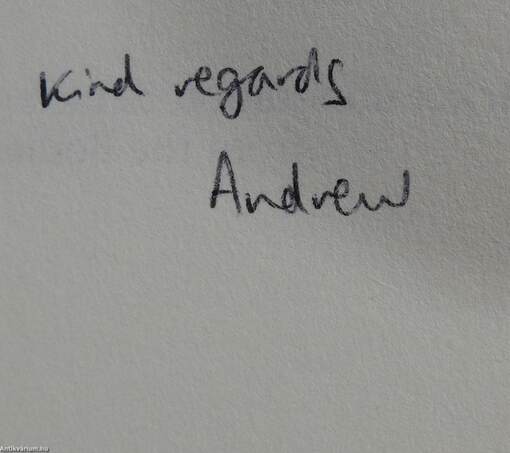 Kind regards
Andrew
Antikvárium.hu